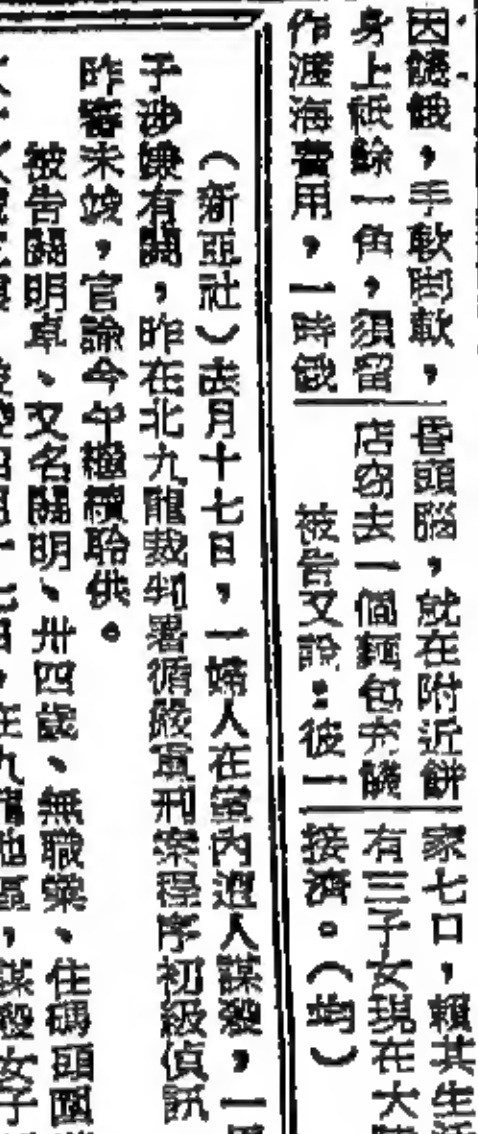 因饑餓，手軟脚軟，
身上祇餘一角，須留
作渡海費用，一時餓
昏頭腦，就在附近餅
店窃去一個麵包充饑
被告又說：彼一
家七口，賴其生活
有三子女現在大
接濟。（均）
（新亞社）去月十七日，一婦人在室內遭人謀殺，一
子涉嫌有關，昨在北九龍裁判署循嚴重刑案程序初級偵訊
昨審未竣，官諭今午繼續聆供。
被告關明卓、又名關明、卅四歲、無職業、住碼頭圍
在九龍地區，謀殺女子